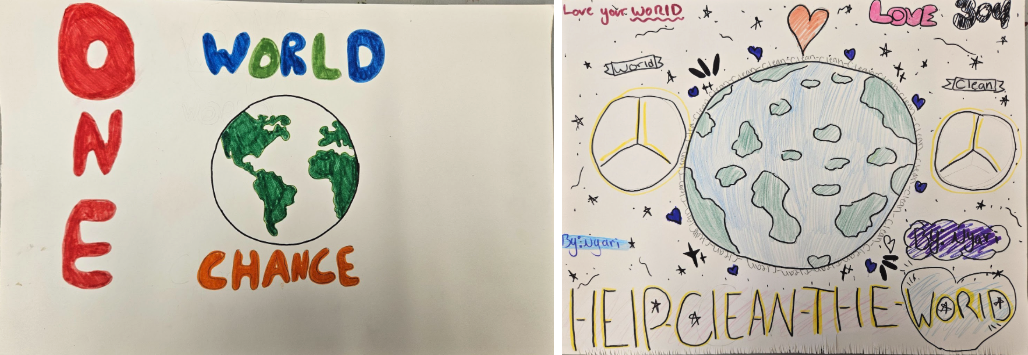 ONE
WORLD
CHANCE
Love your WORLD
LOVE Joy
World
Clean
By: Nyari
By: Nyari
HELP-CLEAN-THE-WORLD